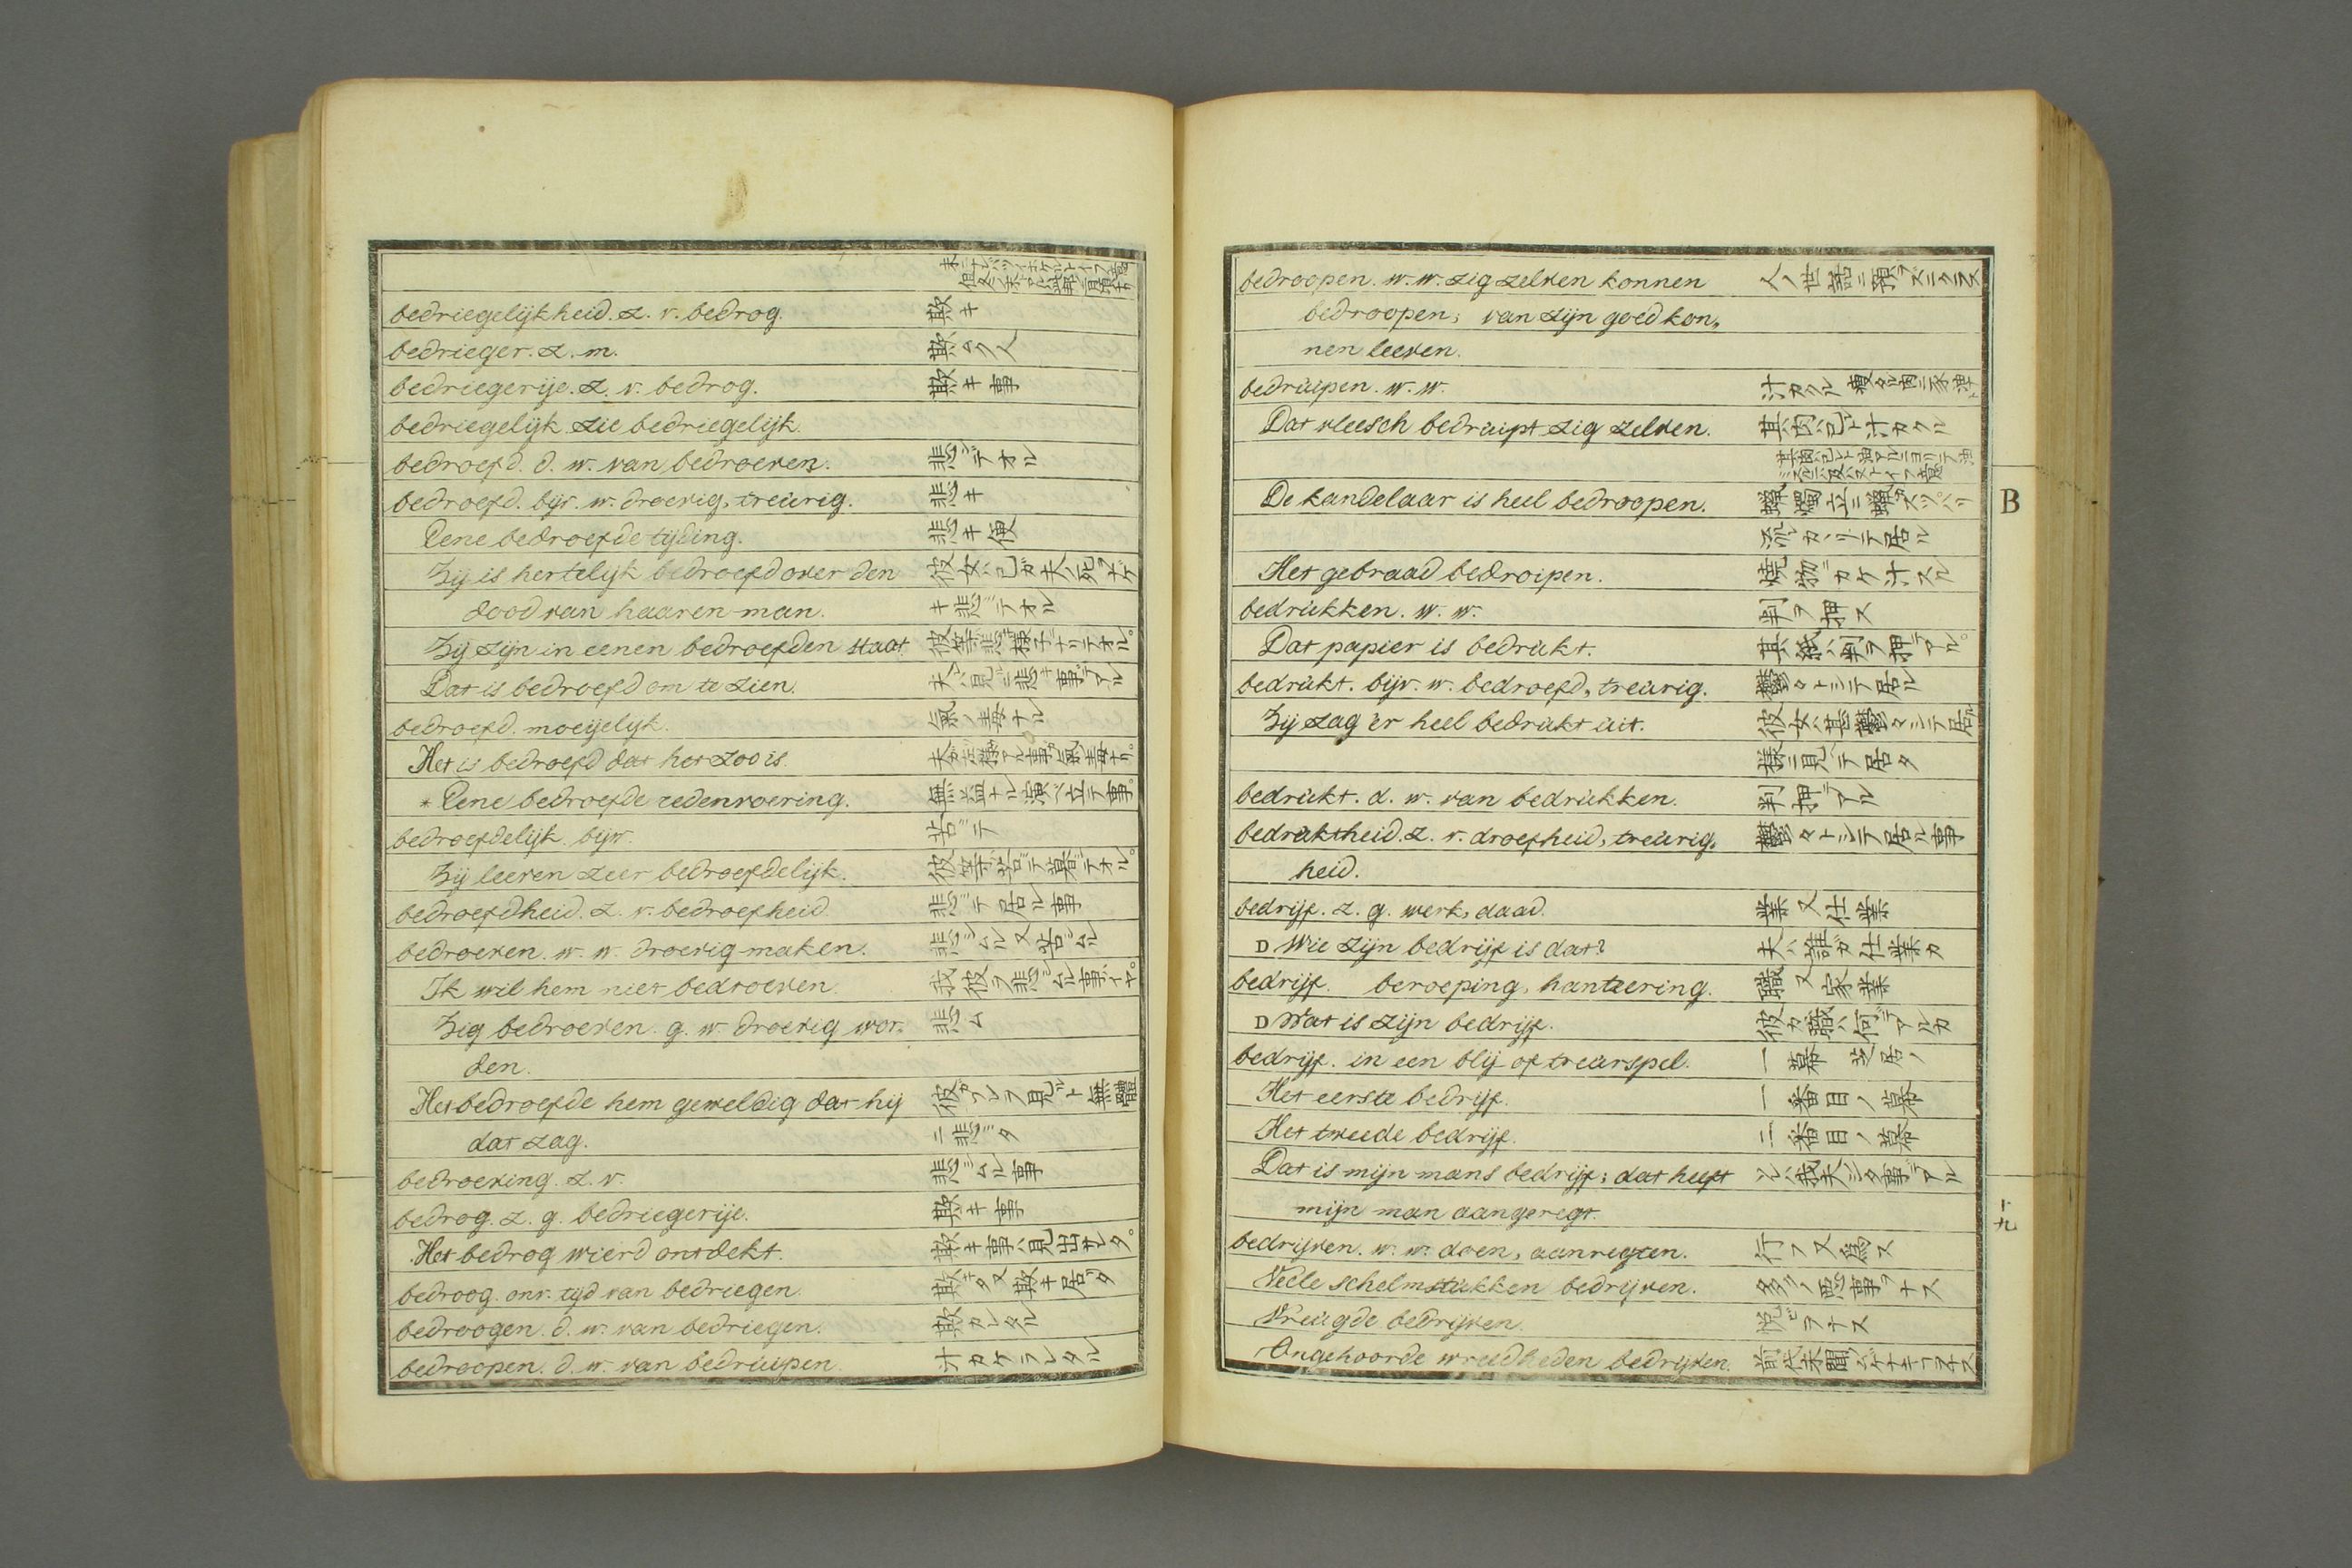 bedriegelijkheid. z. v. bedrog. 欺キ
bedrieger. z. m. 欺ク人
bedriegerije. z. v. bedrog. 欺キ事
bedriegelijk. zie bedriegelijk.
bedroefd. d. w. van bedroeven. 悲デオル
bedroefd. bijv. w. droevig, treurig. 悲キ
Eene bedroefde tijding. 悲キ便
Zij is hertelijk bedroefd over den
dood van haaren man. キ悲デオル
Zij zijn in eenen bedroefden staat.
Dat is bedroefd om te zien.
bedroefd. moeijelijk. 氣ノ毒ナル
Het is bedroefd dat het zoo is.
* Eene bedroefde redenvoering. 無益ナル演ベ立テ事。
bedroefdelijk. bijv. 苦デ
Zij leeven zeer bedroefdelijk.
bedroefdheid. z. v. bedroefheid 悲デ居ル事
bedroeven. w. w. droevig maken. 悲シムル又苦シムル
Ik wil hem niet bedroeven.
Zig bedroeven. g. w. droevig wor„ 悲ム
den.
Het bedroefde hem geweldig dat hij
dat zag. ニ悲ミタ
bedroeving. z. v. 悲シムル事
bedrog. z. g. bedriegerije. 欺キ事
Het bedrog wierd ontdekt. 欺キ事ハ見出サレタ。
bedroog. onv. tijd van bedriegen.
bedroogen. d. w. van bedriegen. 欺カレタル
bedroopen. d. w. van bedruipen. 汁カケラレタル
bedroopen. w. w. zig zelven konnen
bedroopen; van zijn goed kon„
nen leeven.
bedruipen. w. w. 汁カクル
Dat vleesch bedruipt zig zelven. 其肉ハ己レト汁カクル
De kandelaar is heel bedroopen.
流カヽリテ居ル
Het gebraad bedroipen. 燒物ニカケ汁スル
bedrukken. w. w. 判ヲ押ス
B
Dat papier is bedrukt. 其紙ハ判ヲ押テアル。
bedrukt. bijv. w. bedroefd, treurig. 鬱々トシテ居ル
Zij zag 'er heel bedrukt uit. 彼女ハ甚鬱々シテ居ル
樣ニ見ヘテ居タ
bedrukt. d. w. van bedrukken. 判押テアル
bedruktheid. z. v. droefheid, treurig„ 鬱々トシテ居ル事
heid.
bedrijf. z. g. werk, daad. 業又仕業
D Wie zijn bedrijf is dat? 夫ハ誰カ仕業カ
bedrijf. beroeping, hanteering. 職又家業
D Wat is zijn bedrijf. 彼カ職ハ何デアルカ
bedrijf. in een blij of treurspel. 一幕 芝居ノ
Het eerste bedrijf. 一番目ノ幕
Het tweede bedrijf. 二番目ノ幕
Dat is mijn mans bedrijf; dat heeft
mijn man aangeregt.
十九
bedrijven. w. w. doen, aanregten. 行フ又爲ス
Veele schelmstukken bedrijven. 多クノ惡事ヲナス
Vreugde bedrijven. 悦ビヲナス
Ongehoorde wreedheden bedrijven.